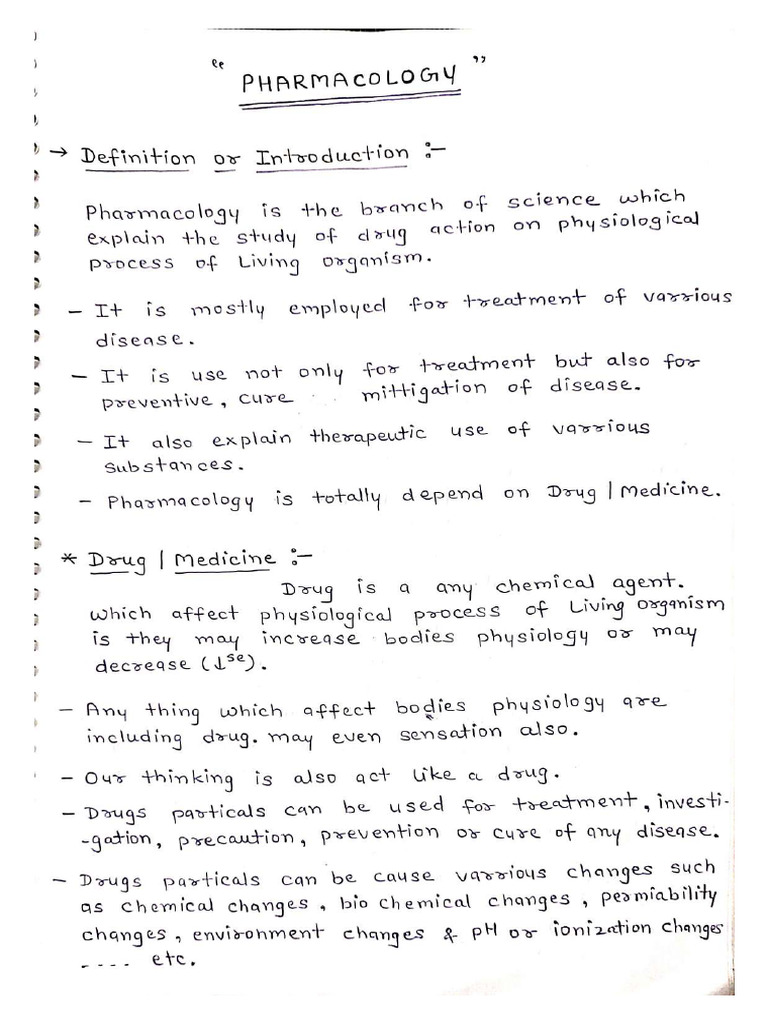 " PHARMACOLOGY "
→ Definition or Introduction :-
Pharmacology is the branch of science which
explain the study of drug action on physiological
process of Living organism.
- It is mostly employed for treatment of varrious
disease.
- It is use not only for treatment but also for
preventive, cure mittigation of disease.
- It also explain therapeutic use of varrious
substances.
- Pharmacology is totally depend on Drug / Medicine.
* Drug / Medicine :-
Drug is a any chemical agent.
which affect physiological process of Living organism
is they may increase bodies physiology or may
decrease (↓se).
- Any thing which affect bodies physiology are
including drug. may even sensation also.
- Our thinking is also act like a drug.
- Drugs particals can be used for treatment, investi-
-gation, precaution, prevention or cure of any disease.
- Drugs particals can be cause varrious changes such
as chemical changes, bio chemical changes, permiability
changes, environment changes & pH or ionization changes
.... etc.